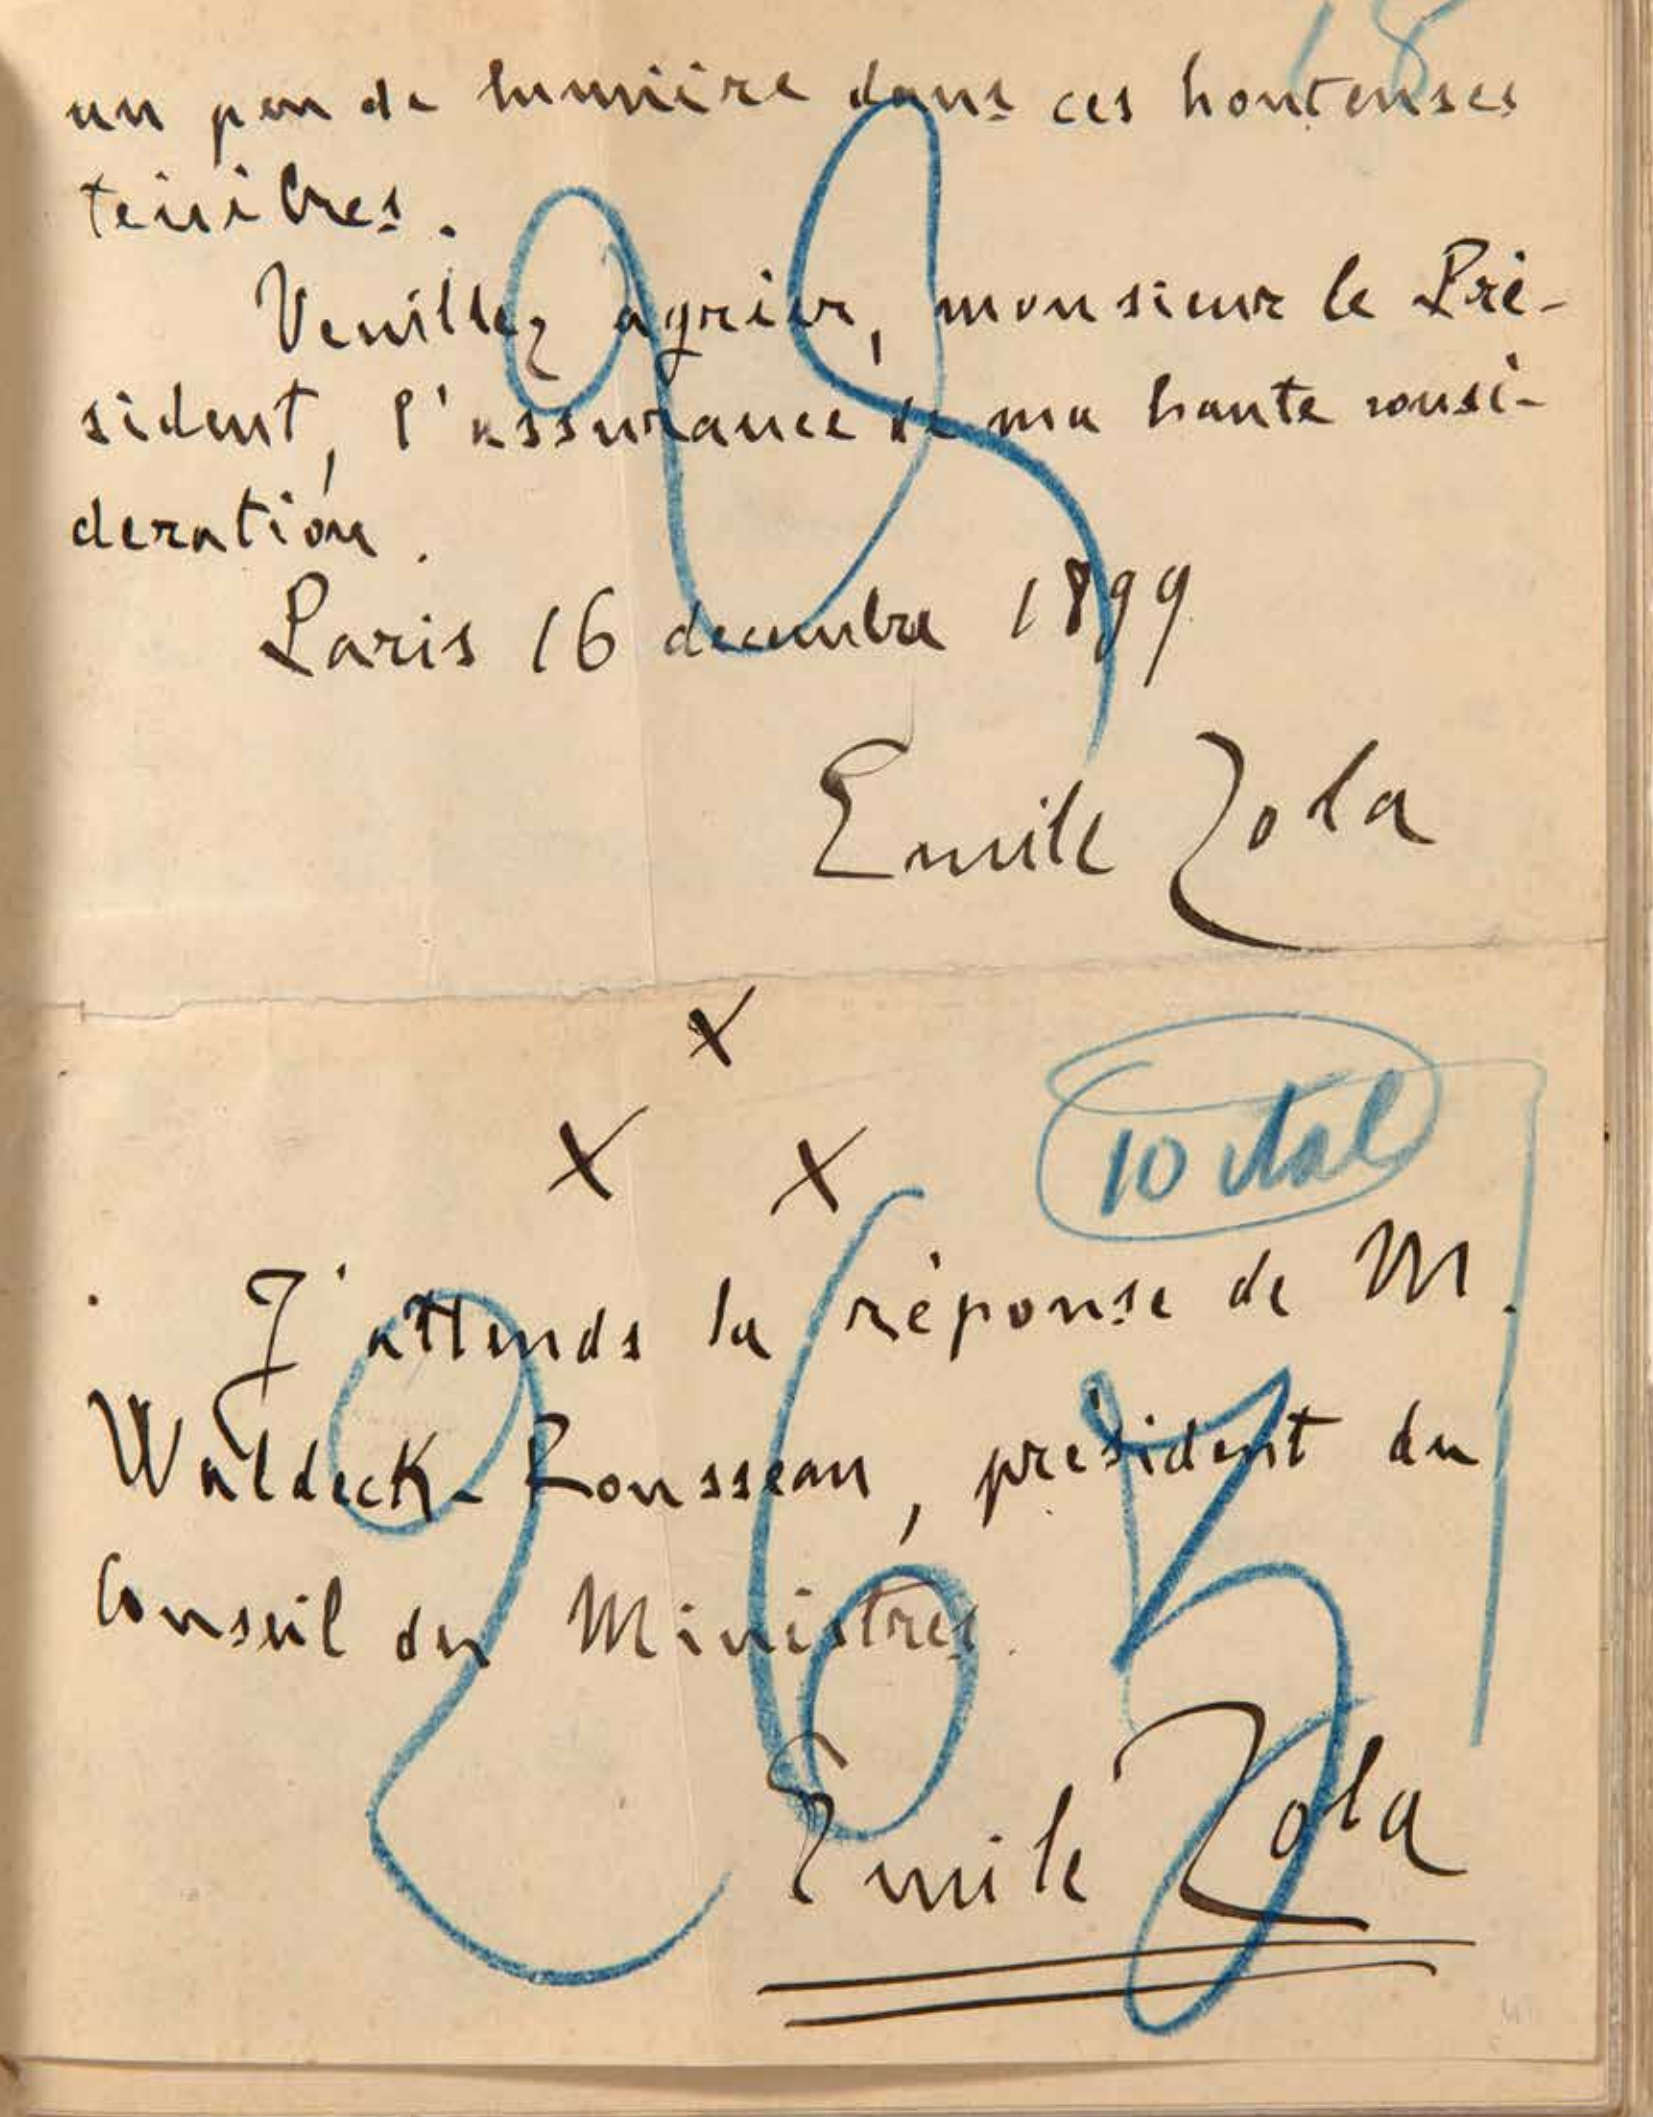 18
un peu de lumière dans ces honteuses
ténèbres.
Veuillez agréer, monsieur le Pré-
sident, l'assurance de ma haute consi-
dération.
Paris 16 decembre 1899
Emile Zola
x
x x
10 ital
J'attends la réponse de M.
Waldeck-Rousseau, président du
Conseil des Ministres.
Emile Zola